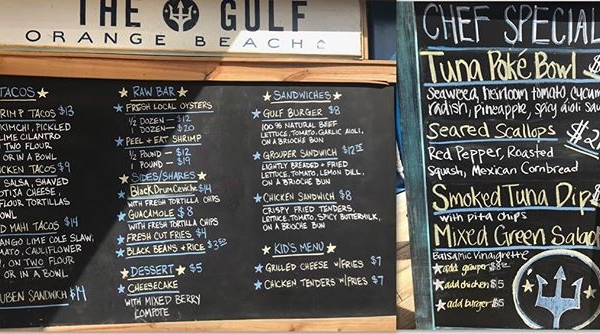 THE GULF
ORANGE BEACH
TACOS
RIMP TACOS $13
KIMCHI, PICKLED
LIME CILANTRO
TWO FLOUR
OR IN A BOWL
CKEN TACOS $9
SALSA, SHAVED
OTIJA CHEESE,
FLOUR TORTILLAS
BOWL
D MAHI TACOS $14
ANGO LIME COLE SLAW,
ATO, CAULIFLOWER
, ON TWO FLOUR
OR IN A BOWL
UBEN SANDWICH $14
RAW BAR
FRESH LOCAL OYSTERS
1/2 DOZEN — $12
1 DOZEN — $20
PEEL + EAT SHRIMP
1/2 POUND — $12
1 POUND — $19
SIDES/SHARES
BLACK DRUM CEVICHE $14
WITH FRESH TORTILLA CHIPS
GUACAMOLE $8
WITH FRESH TORTILLA CHIPS
FRESH CUT FRIES $4
BLACK BEANS + RICE $3.50
DESSERT $5
CHEESECAKE
WITH MIXED BERRY
COMPOTE
SANDWICHES
GULF BURGER $8
100% NATURAL BEEF
LETTUCE, TOMATO, GARLIC AIOLI,
ON A BRIOCHE BUN
GROUPER SANDWICH
LIGHTLY BREADED + FRIED
LETTUCE, TOMATO, LEMON DILL,
ON A BRIOCHE BUN
CHICKEN SANDWICH $8
CRISPY FRIED TENDERS,
LETTUCE, TOMATO, SPICY BUTTERMILK,
ON A BRIOCHE BUN
KID'S MENU
GRILLED CHEESE W/FRIES $7
CHICKEN TENDERS W/FRIES $7
CHEF SPECIAL
Tuna Poké Bowl $
Seaweed, heirloom tomato, cucum
radish, pineapple, spicy aioli sau
Seared Scallops $2
Red Pepper, Roasted
Squash, Mexican Cornbread
Smoked Tuna Dip $
with pita chips
Mixed Green Salad
Balsamic Vinaigrette
add grouper
add chicken $5
add burger $5